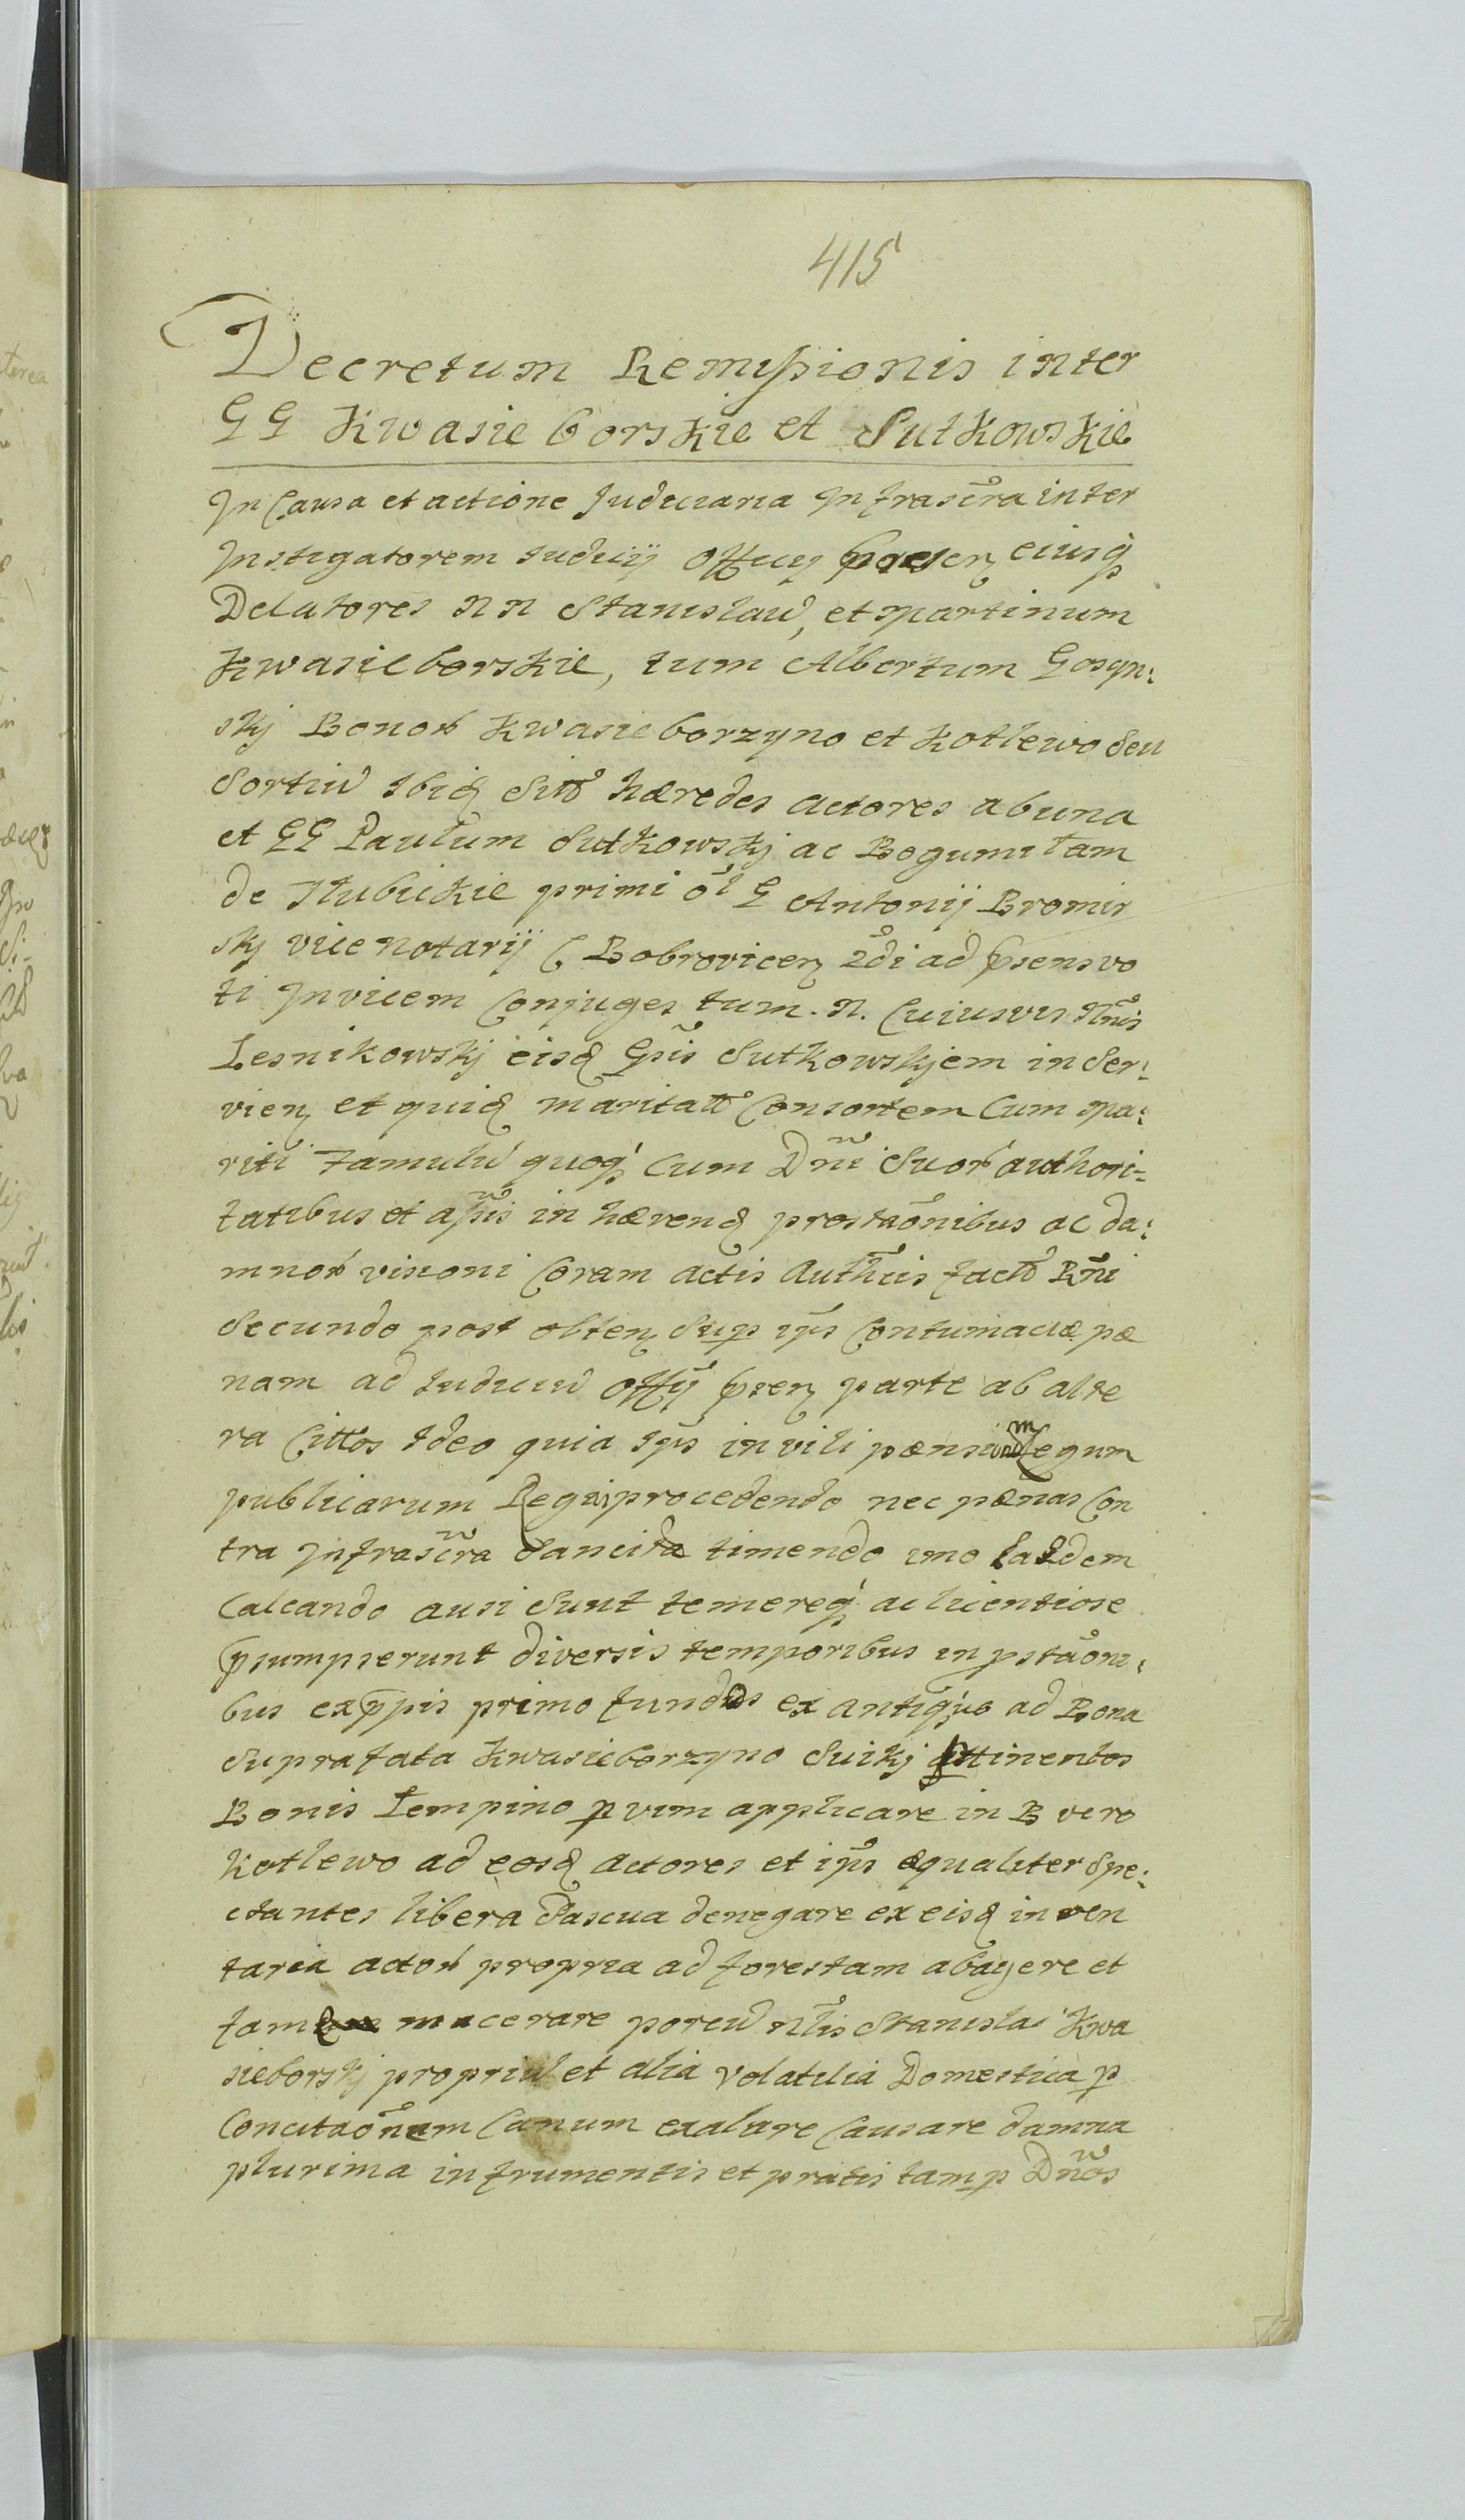 415
Decretum Remissionis inter
GG Kwasieborskie et Sutkowskie
In Causa et actione Judiciaria Infrascr̃a inter
Instigatorem Judicij Officij praesen eiusq
Delatores NN Stanislaũ, et Martinum
Kwasieborskie, tum Albertum Gosyn:
skj Bonoꝝ Kwasieborzyno et Kotlewo seu
Sortiũ Ibid sittõ hæredes actores ab una
et GG Paulum Sutkowskj ac Bogumilam
de Hubickie primi õl G Antonij Bromir
skj vice notarij C Bobrovicen 2di ad p̃sens vo
ti Invicem Conjuges tum. N. Cuiusvis Nñis
Lesnikowskj eisd Gsis Sutkowskjem in Ser:
vien et quid maritatt̃ Consortem Cum Ma:
riti Famulũ quoq Cum Dñi Suoꝝ authori=
tatibus et aſsis in hærend protestaõnibus ac da:
mnoꝝ visioni Coram actis Authcis factõ Rñi
Secundo post obten Sup ip̃s Contumaciæ pæ
nam ad Iudiciũ Offij p̃sen parte ab alte
ra Cittos Ideo quia ip̃s in vili pænsionem Legum
publicarum Regni procedendo nec pænas Con
tra Infrascr̃a Sancita timendo imo Easdem
Calcando ausi Sunt temereq ac licentiose
p̃sumpserunt diversis temporibus in p̃staõni:
bus exp̃sis primo fundos ex antiquo ad Bona
Suprafata Kwasieborzyno Suikj p̃ttinentes
Bonis Lempino p vim applicare in B vero
Kotlewo ad eosd actores et ip̃s æqualiter Spe:
ctantes libera Pascua denegare ex eisd inven
taria actoꝝ propria ad forestam abagere et
fame macerare porcũ Nlis Stanislai Kwa
sieborskj propriũ et alia Volatilia Domestica p
Concitaõnem Canum exalare Causare damna
plurima in frumentis et pratis tam p Dños